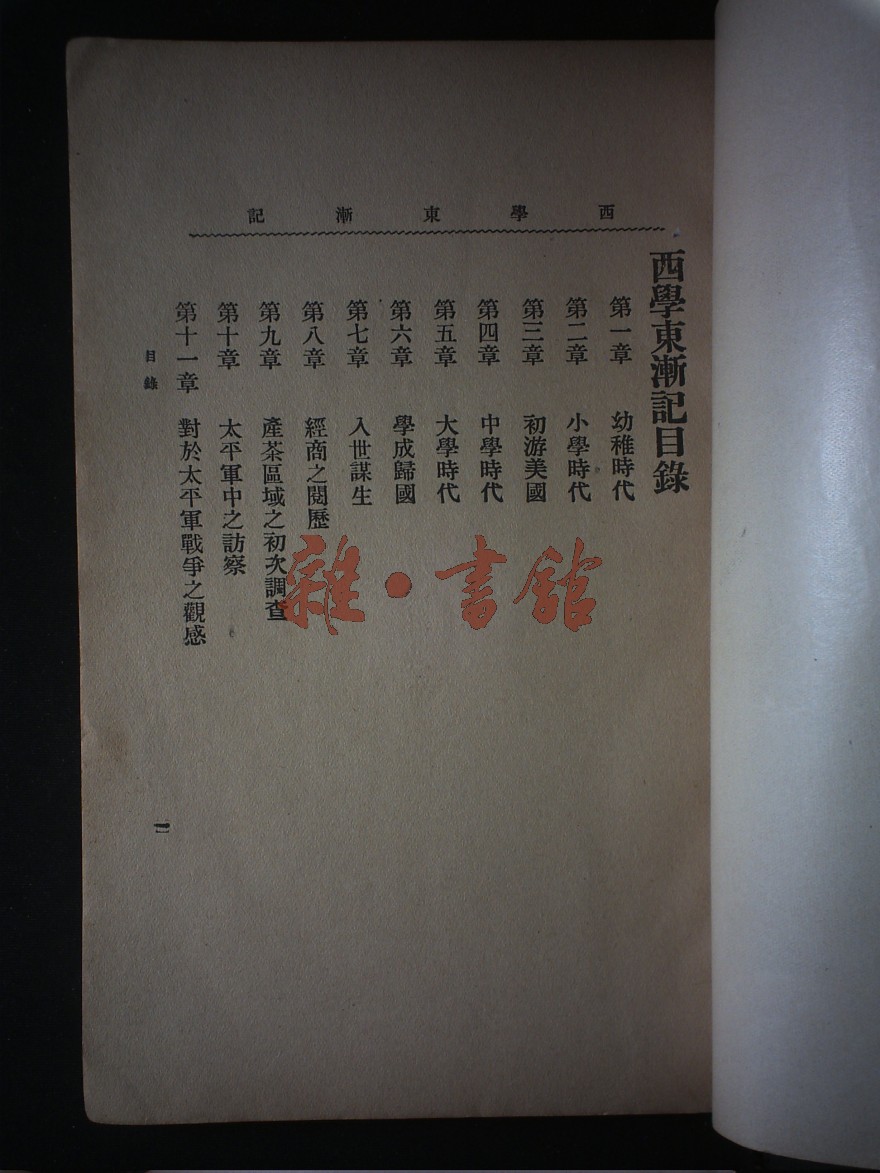 西學東漸記
西學東漸記目錄
第一章 幼稚時代
第二章 小學時代
第三章 初游美國
第四章 中學時代
第五章 大學時代
第六章 學成歸國
第七章 入世謀生
第八章 經商之閱歷
第九章 產茶區域之初次調查
第十章 太平軍中之訪察
第十一章 對於太平軍戰爭之觀感
目錄
一
雜·書館